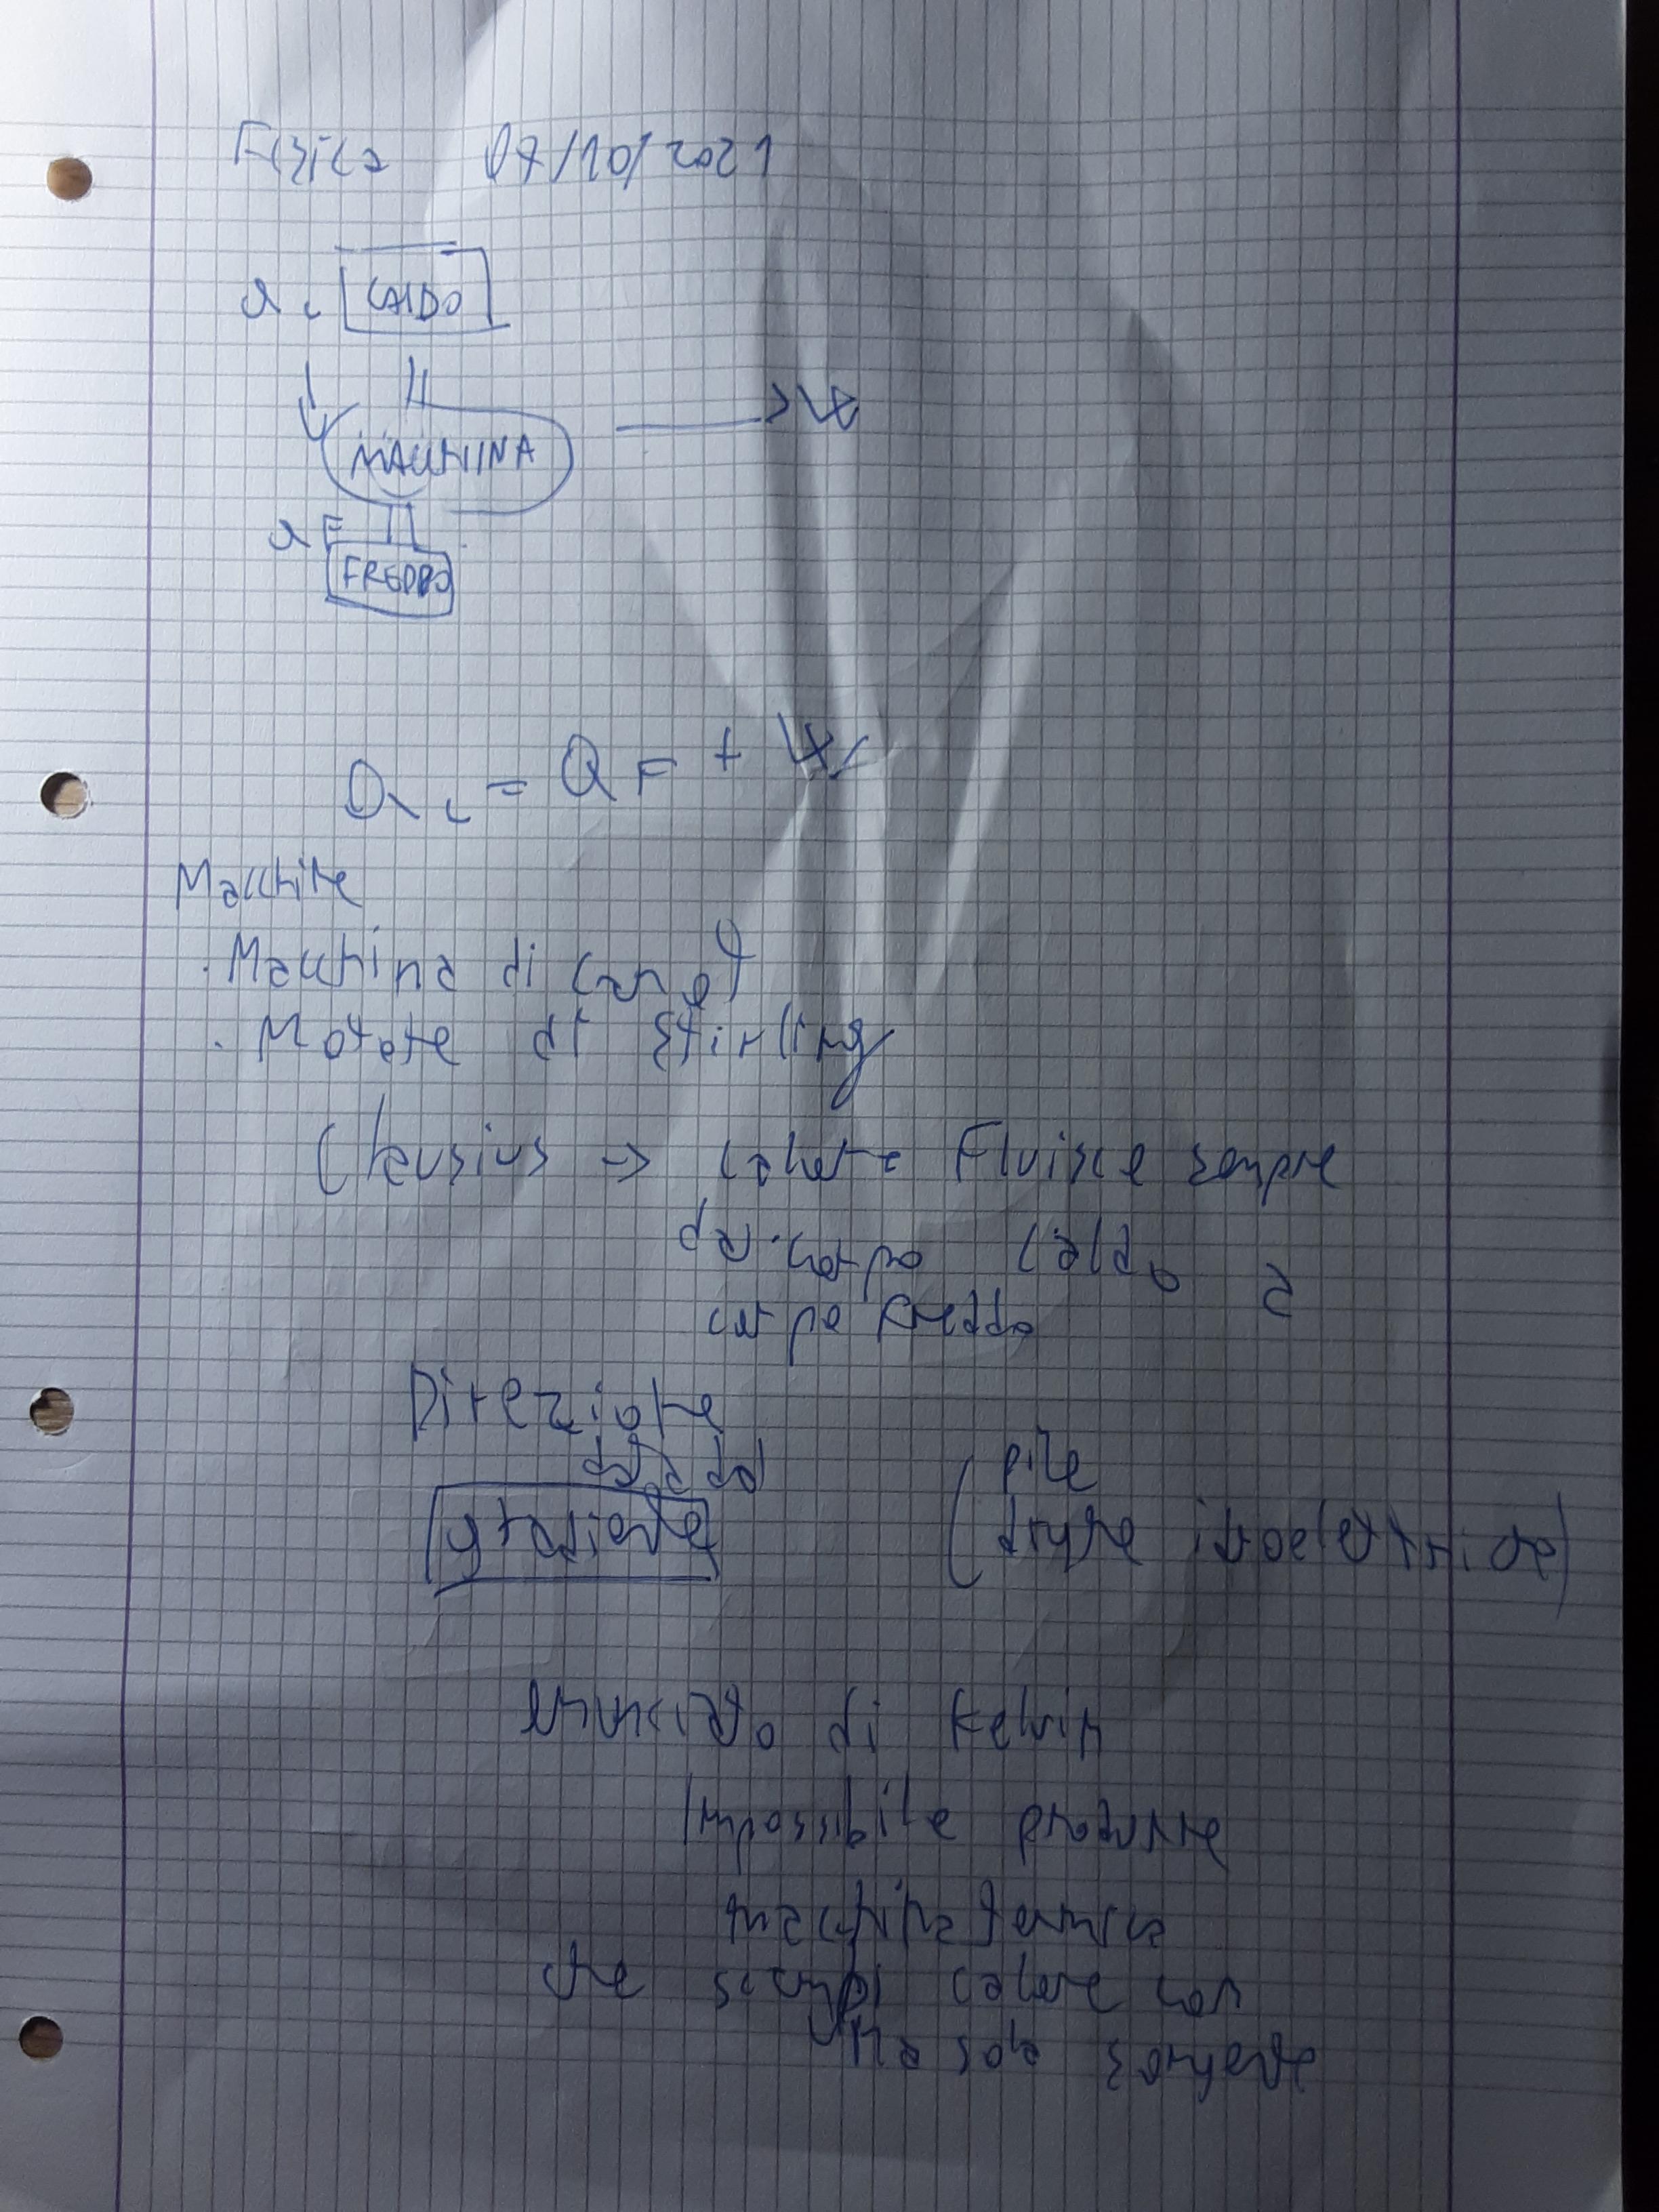 Fisica 07/10/2021
Qc CALDO
MACCHINA → W
QF
FREDDO
Qc = QF + W
Macchine
. Macchina di Carnot
. Motore di Stirling
Clausius → calore Fluisce sempre
da corpo caldo a
corpo Freddo
Direzione
pile
idroelettrica)
enunciato di Kelvin
Impossibile produrre
scambi calore con
una sola sorgente